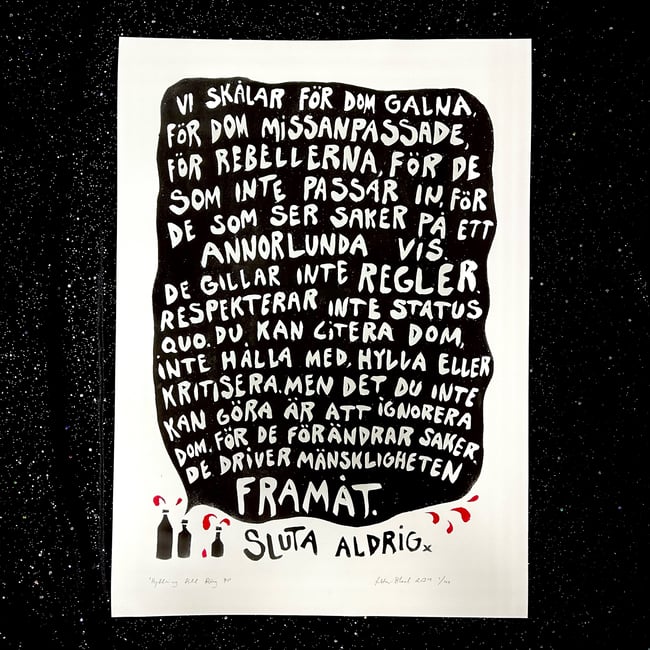 VI SKÅLAR FÖR DOM GALNA,
FÖR DOM MISSANPASSADE,
FÖR REBELLERNA, FÖR DE
SOM INTE PASSAR IN, FÖR
DE SOM SER SAKER PÅ ETT
ANNORLUNDA VIS.
DE GILLAR INTE REGLER.
RESPEKTERAR INTE STATUS
QUO. DU KAN CITERA DOM,
INTE HÅLLA MED, HYLLA ELLER
KRITISERA. MEN DET DU INTE
KAN GÖRA ÄR ATT IGNORERA
DOM. FÖR DE FÖRÄNDRAR SAKER.
DE DRIVER MÄNSKLIGHETEN
FRAMÅT.
SLUTA ALDRIG x